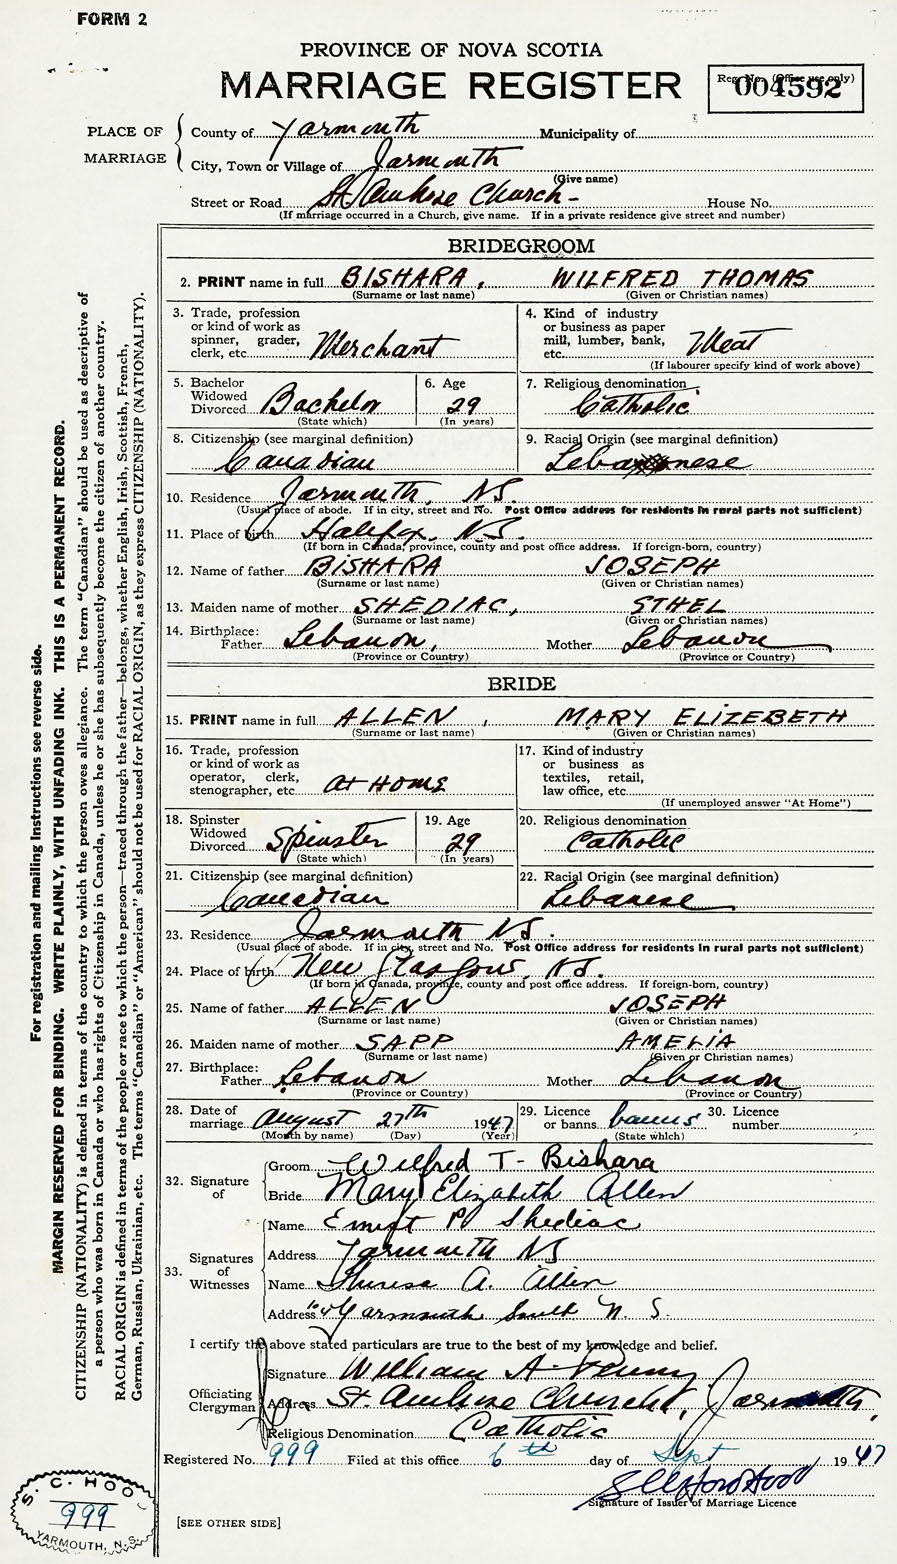 FORM 2
PROVINCE OF NOVA SCOTIA
MARRIAGE REGISTER
Reg. No. (Office use only)
004592
PLACE OF MARRIAGE
County of Yarmouth Municipality of
City, Town or Village of Yarmouth
(Give name)
Street or Road St. Ambrose Church - House No.
(If marriage occurred in a Church, give name. If in a private residence give street and number)
BRIDEGROOM
2. PRINT name in full BISHARA, WILFRED THOMAS
(Surname or last name) (Given or Christian names)
3. Trade, profession or kind of work as spinner, grader, clerk, etc. Merchant
4. Kind of industry or business as paper mill, lumber, bank, etc. Meat
(If labourer specify kind of work above)
5. Bachelor Widowed Divorced Bachelor
(State which)
6. Age 29
(In years)
7. Religious denomination Catholic
8. Citizenship (see marginal definition) Canadian
9. Racial Origin (see marginal definition) Lebanese
10. Residence Yarmouth, NS.
(Usual place of abode. If in city, street and No. Post Office address for residents in rural parts not sufficient)
11. Place of birth Halifax, N.S.
(If born in Canada, province, county and post office address. If foreign-born, country)
12. Name of father BISHARA JOSEPH
(Surname or last name) (Given or Christian names)
13. Maiden name of mother SHEDIAC, STHEL
(Surname or last name) (Given or Christian names)
14. Birthplace: Father Lebanon, Mother Lebanon
(Province or Country) (Province or Country)
BRIDE
15. PRINT name in full ALLEN, MARY ELIZEBETH
(Surname or last name) (Given or Christian names)
16. Trade, profession or kind of work as operator, clerk, stenographer, etc. at HOME
17. Kind of industry or business as textiles, retail, law office, etc.
(If unemployed answer "At Home")
18. Spinster Widowed Divorced Spinster
(State which)
19. Age 29
(In years)
20. Religious denomination Catholic
21. Citizenship (see marginal definition) Canadian
22. Racial Origin (see marginal definition) Lebanese
23. Residence Yarmouth NS.
(Usual place of abode. If in city, street and No. Post Office address for residents in rural parts not sufficient)
24. Place of birth New Glasgow, N.S.
(If born in Canada, province, county and post office address. If foreign-born, country)
25. Name of father ALLEN JOSEPH
(Surname or last name) (Given or Christian names)
26. Maiden name of mother SAPP AMELIA
(Surname or last name) (Given or Christian names)
27. Birthplace: Father Lebanon Mother Lebanon
(Province or Country) (Province or Country)
28. Date of marriage August 27th 1947
(Month by name) (Day) (Year)
29. Licence or banns banns
(State which)
30. Licence number
32. Signature of
Groom Wilfred T. Bishara
Bride Mary Elizabeth Allen
33. Signatures of Witnesses
Name Ernest P Shediac
Address Yarmouth NS
Name Theresa A. Allen
Address Yarmouth South N.S.
I certify the above stated particulars are true to the best of my knowledge and belief.
Officiating Clergyman
Signature William A. Penny
Address St. Ambrose Church, Yarmouth,
Religious Denomination Catholic
Registered No. 999 Filed at this office 6th day of Sept 1947
Signature of Issuer of Marriage Licence
[SEE OTHER SIDE]
S. C. HOO
999
YARMOUTH, N.S.
For registration and mailing instructions see reverse side.
MARGIN RESERVED FOR BINDING. WRITE PLAINLY, WITH UNFADING INK. THIS IS A PERMANENT RECORD.
CITIZENSHIP (NATIONALITY) is defined in terms of the country to which the person owes allegiance. The term "Canadian" should be used as descriptive of
a person who was born in Canada or who has rights of Citizenship in Canada, unless he or she has subsequently become the citizen of another country.
RACIAL ORIGIN is defined in terms of the people or race to which the person—traced through the father—belongs, whether English, Irish, Scottish, French,
German, Russian, Ukrainian, etc. The terms "Canadian" or "American" should not be used for RACIAL ORIGIN, as they express CITIZENSHIP (NATIONALITY).